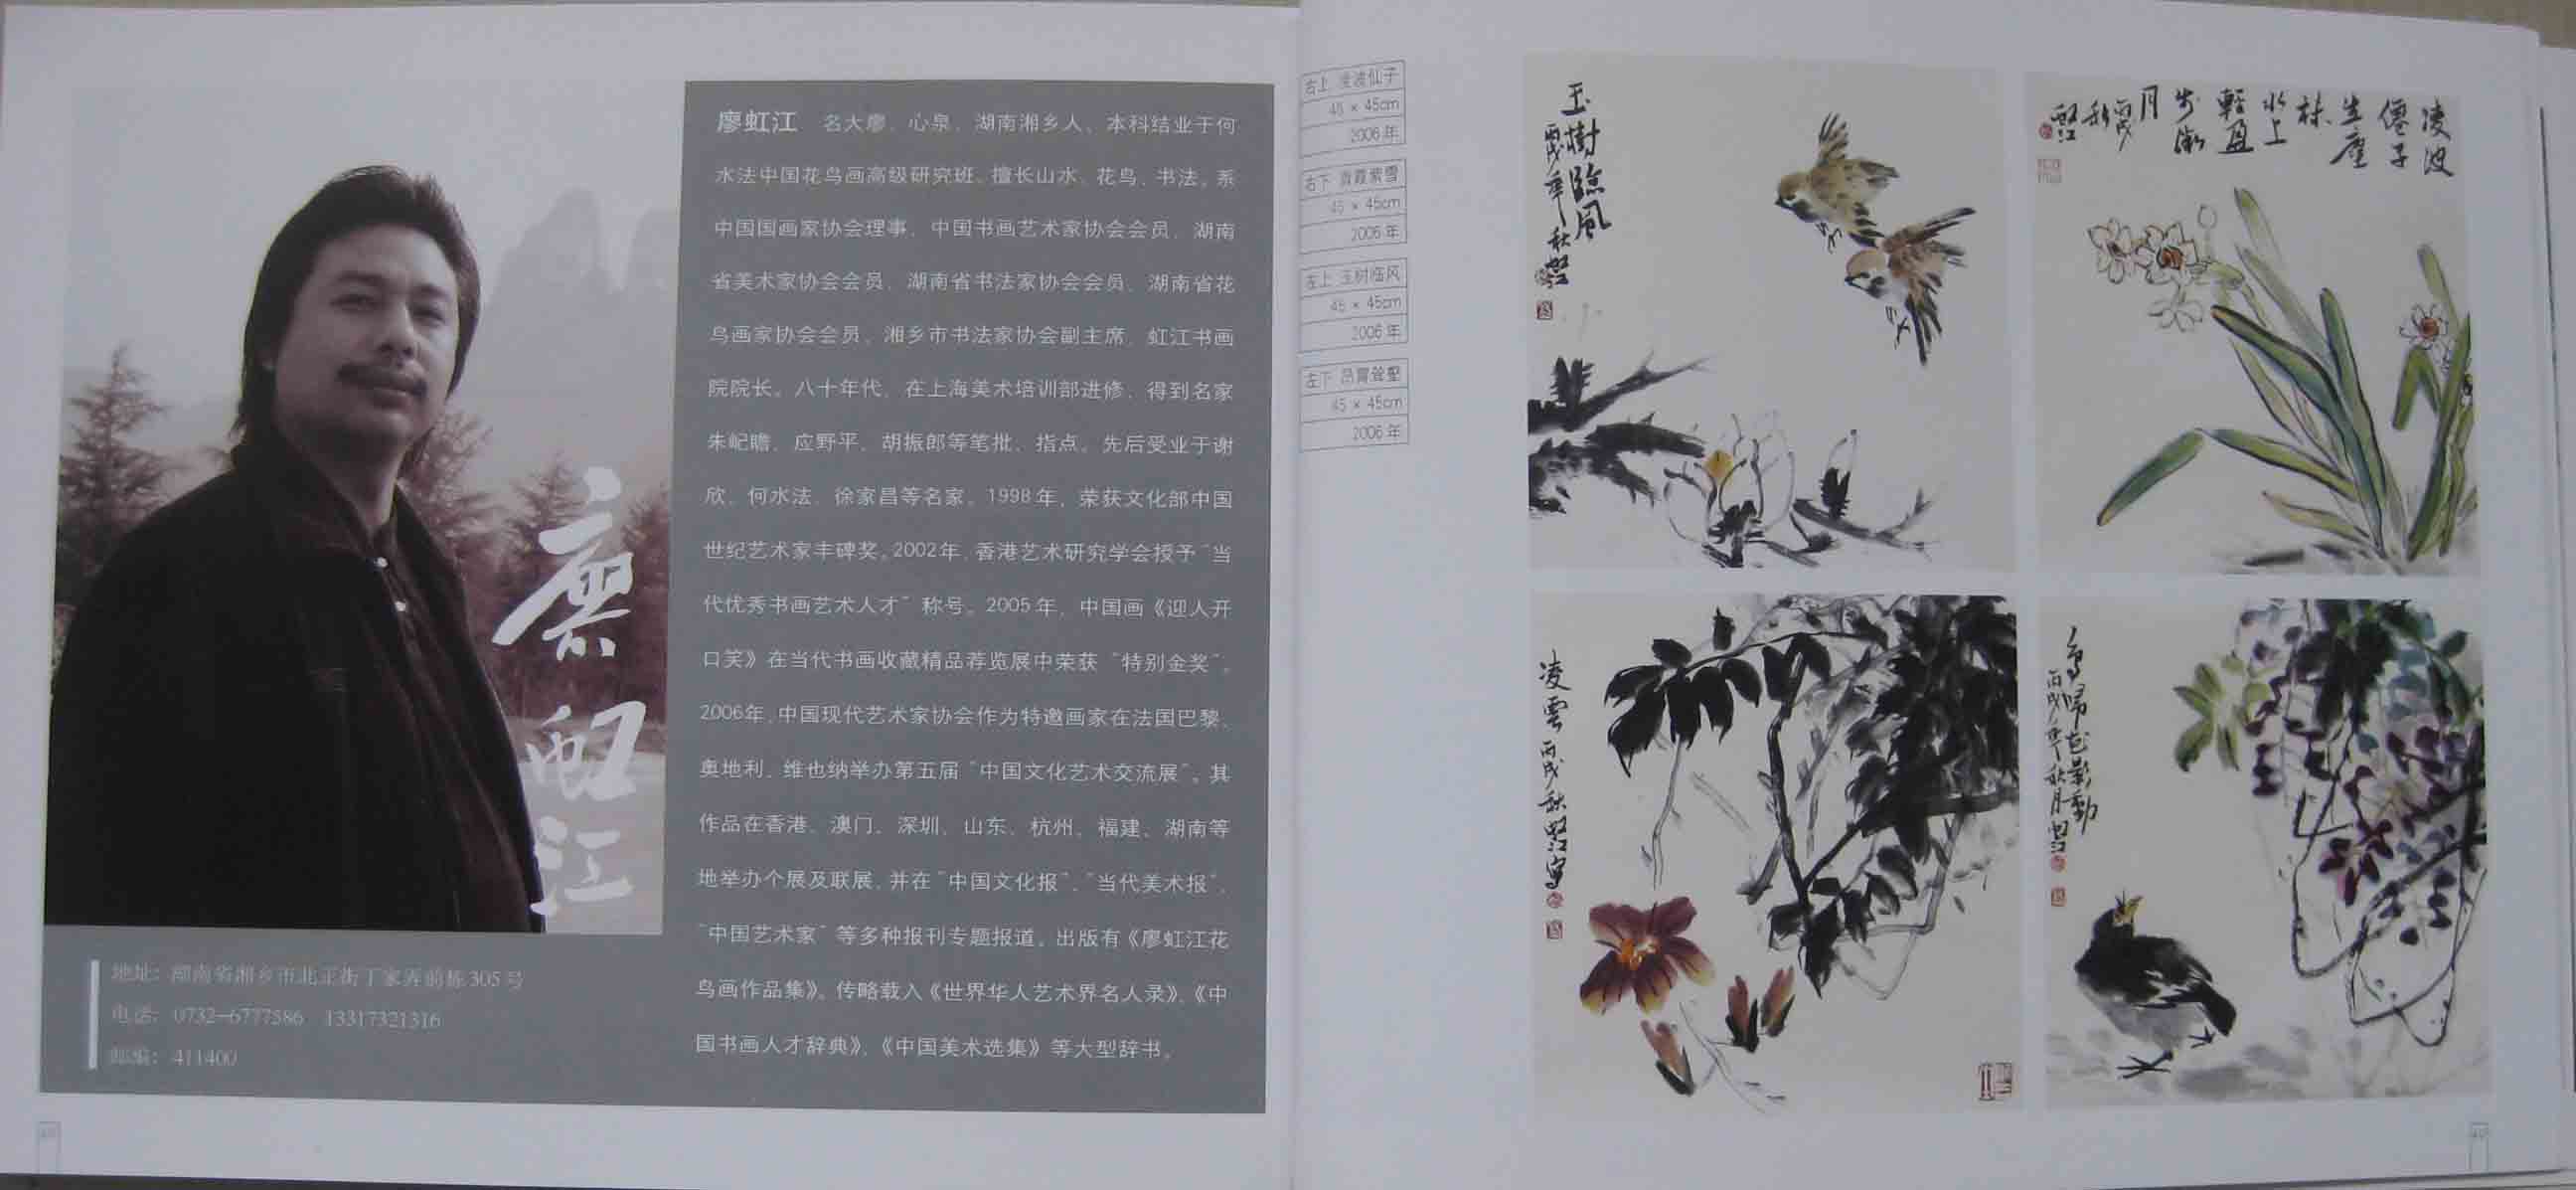 廖虹江 名大廖、心泉、湖南湘乡人、本科结业于何
水法中国花鸟画高级研究班、擅长山水、花鸟、书法。系
中国国画家协会理事、中国书画艺术家协会会员、湖南
省美术家协会会员、湖南省书法家协会会员、湖南省花
鸟画家协会会员、湘乡市书法家协会副主席、虹江书画
院院长。八十年代，在上海美术培训部进修、得到名家
朱屺瞻、应野平、胡振郎等笔批、指点。先后受业于谢
欣、何水法、徐家昌等名家。1998年，荣获文化部中国
世纪艺术家丰碑奖。2002年，香港艺术研究学会授予“当
代优秀书画艺术人才”称号。2005年，中国画《迎人开
口笑》在当代书画收藏精品荐览展中荣获“特别金奖”。
2006年，中国现代艺术家协会作为特邀画家在法国巴黎、
奥地利、维也纳举办第五届“中国文化艺术交流展”。其
作品在香港、澳门、深圳、山东、杭州、福建、湖南等
地举办个展及联展，并在“中国文化报”、“当代美术报”、
“中国艺术家”等多种报刊专题报道。出版有《廖虹江花
鸟画作品集》。传略载入《世界华人艺术界名人录》、《中
国书画人才辞典》、《中国美术选集》等大型辞书。
廖虹江
地址：湖南省湘乡市北正街丁家弄前栋305号
电话：0732-6777586 13317321316
邮编：411400
右上 凌波仙子
45 × 45cm
2006年
右下 霞紫雪
45 × 45cm
2006年
左上 玉树临风
45 × 45cm
2006年
左下
45 × 45cm
2006年
玉樹臨風
丙戌年秋
凌波
僊子
生塵
袜
水上
輕盈
步微
月
丙戌
秋
虹江
凌雲
丙戌秋虹江写
鳥歸花影動
丙戌年秋月